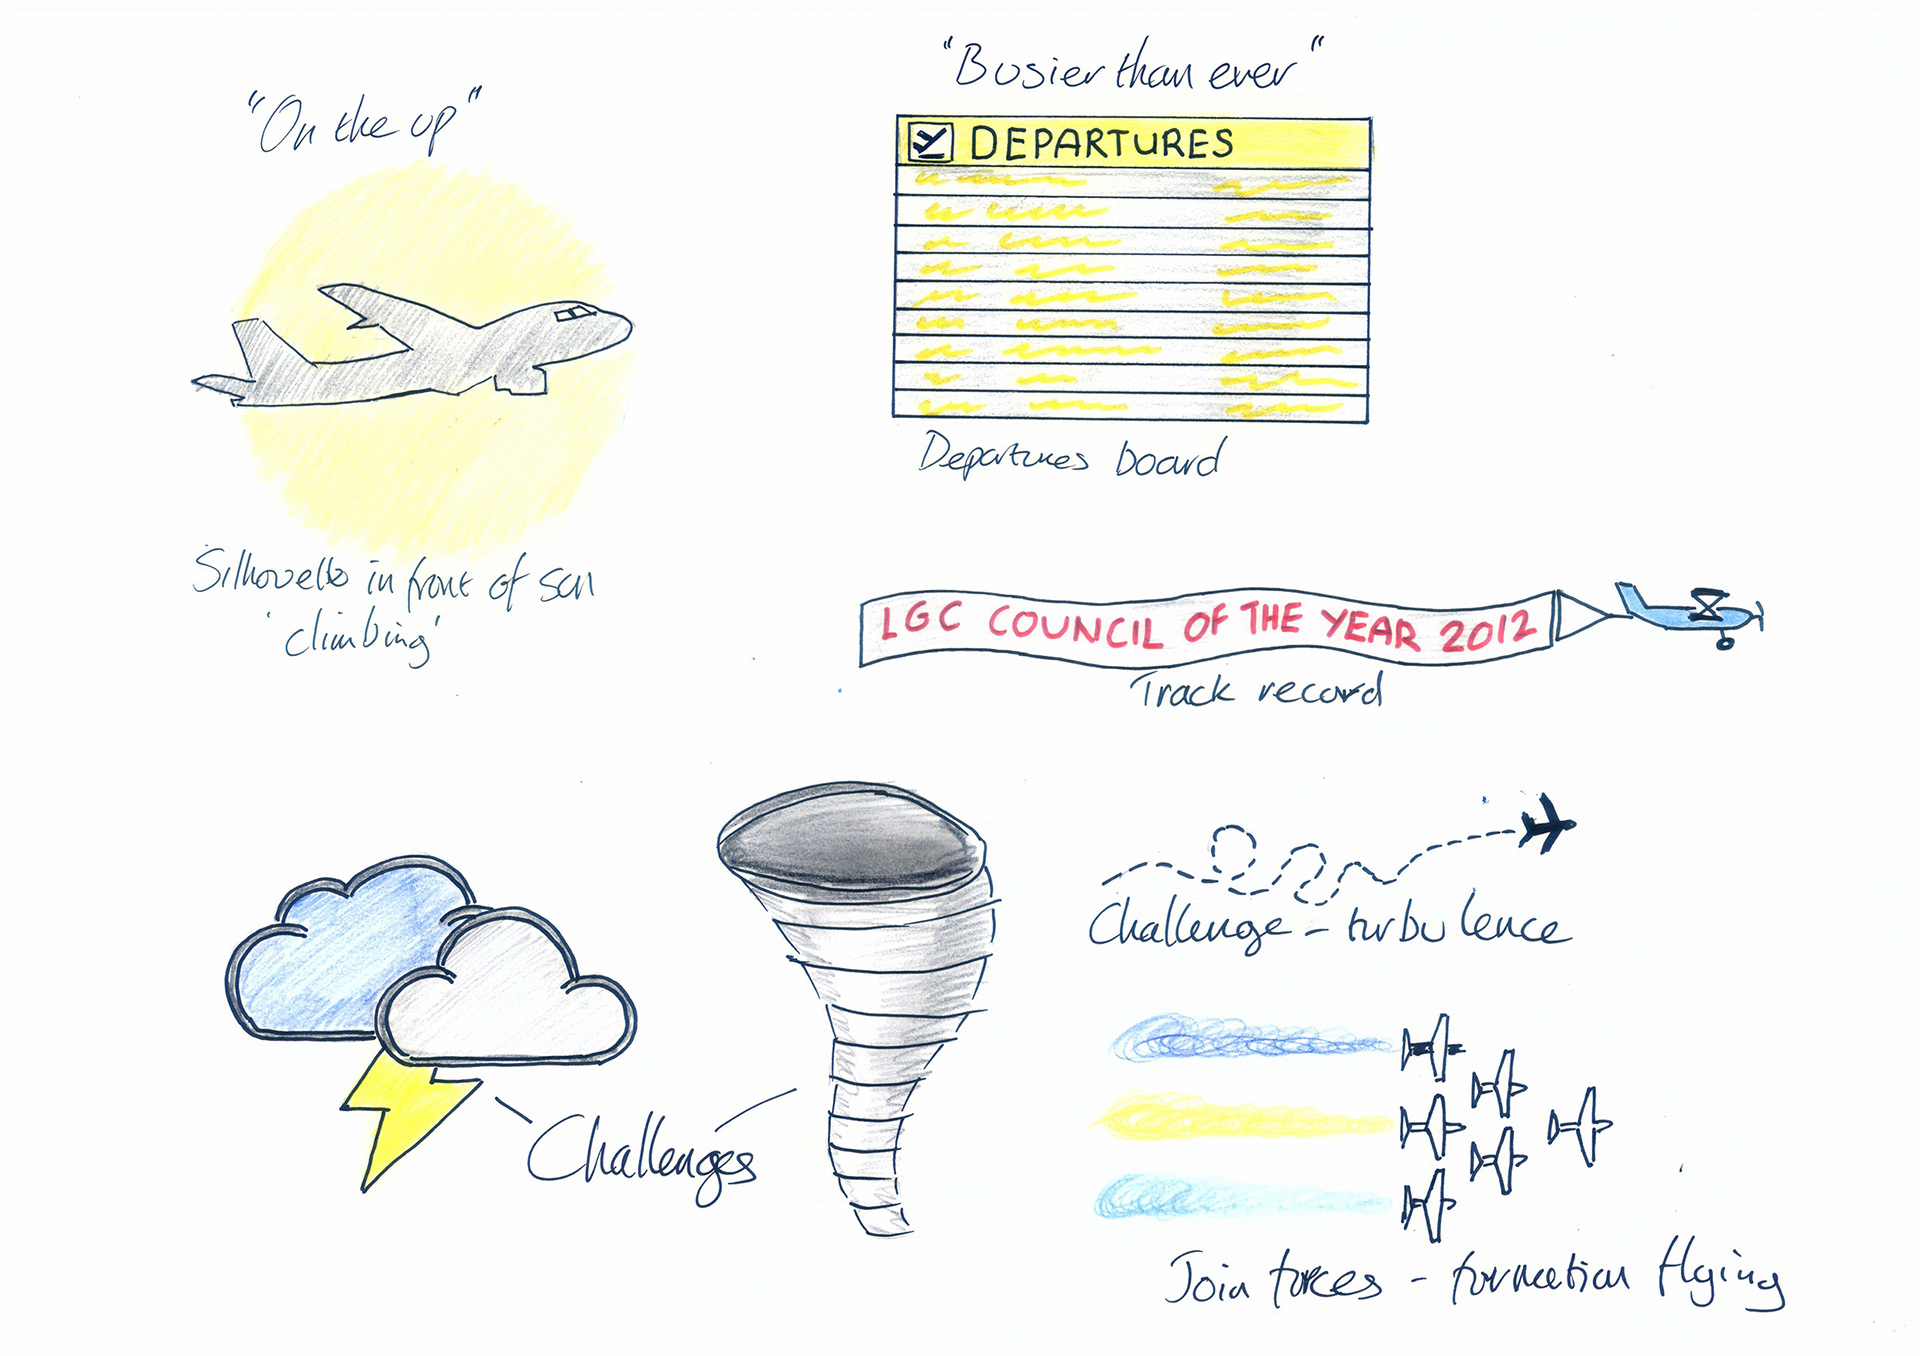 "On the up"
Silhouette in front of sun
'climbing'
"Busier than ever"
DEPARTURES
Departures board
LGC COUNCIL OF THE YEAR 2012
Track record
Challenges
Challenge - turbulence
Join forces - formation flying